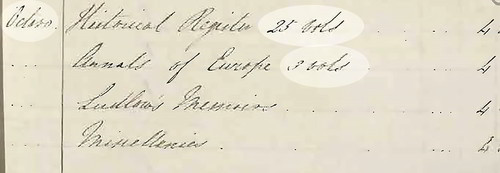 Octavo. Historical Register 25 vols ... 4
... Annals of Europe 3 vols ... 4
... Ludlow's Memoirs ... 4
... Miscellanies ... 4